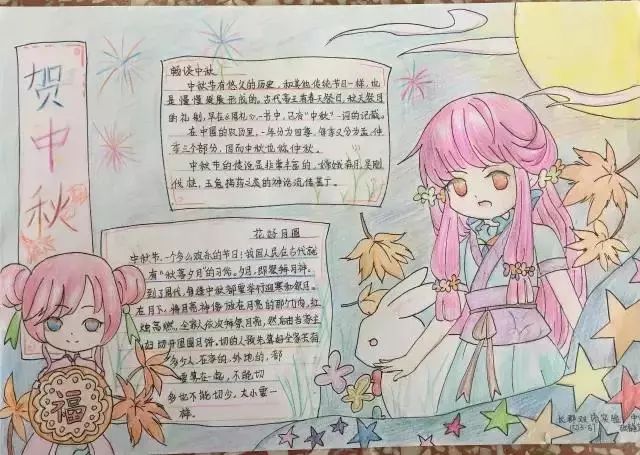 贺中秋
畅谈中秋
中秋节有悠久的历史，和其他传统节日一样，也
是慢慢发展形成的。古代帝王有春天祭日，秋天祭月
的礼制，早在《周礼》一书中，已有"中秋"一词的记载。
在中国的农历里，一年分为四季，每季又分为孟、仲
季三个部分，因而中秋也称仲秋。
中秋节的传说是非常丰富的，嫦娥奔月，吴刚
伐桂，玉兔捣药之类的神话流传甚广。
花好月圆
中秋节，一个多么欢乐的节日！我国人民在古代就
有"秋暮夕月"的习俗。夕月，即祭拜月神。
到了周代，每逢中秋都要举行迎寒和祭月。
在月下，将月亮神像放在月亮的那个方向，红
烛高燃，全家人依次拜祭月亮，然后由当家主
妇切开团圆月饼。切的人预先算好全家共有
多少人，在家的、外地的，都
要算在一起，不能切
多也不能切少，大小要一
样。
福
长郡双语实验中